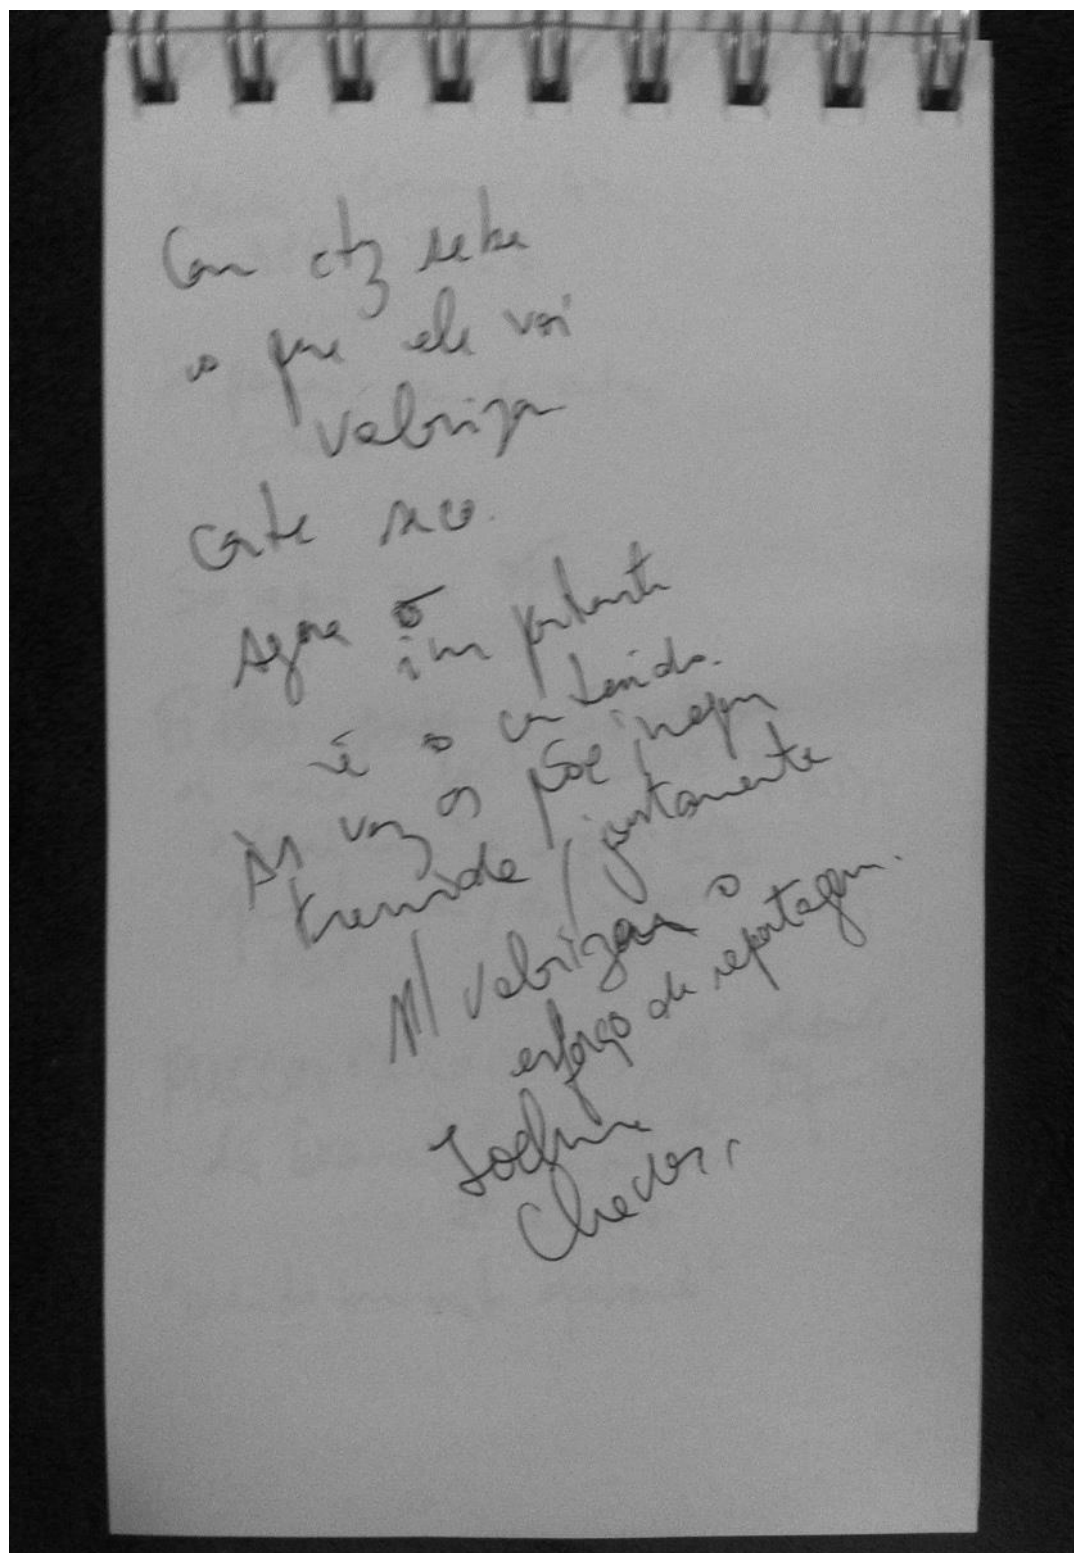 Com ctz sabe
o que ele vai
valorizar
corte seco.
Agora o
importante
é o conteúdo.
Às vez os põe imagem
tremida / justamente
p/ valorizar o
esforço de reportagem.